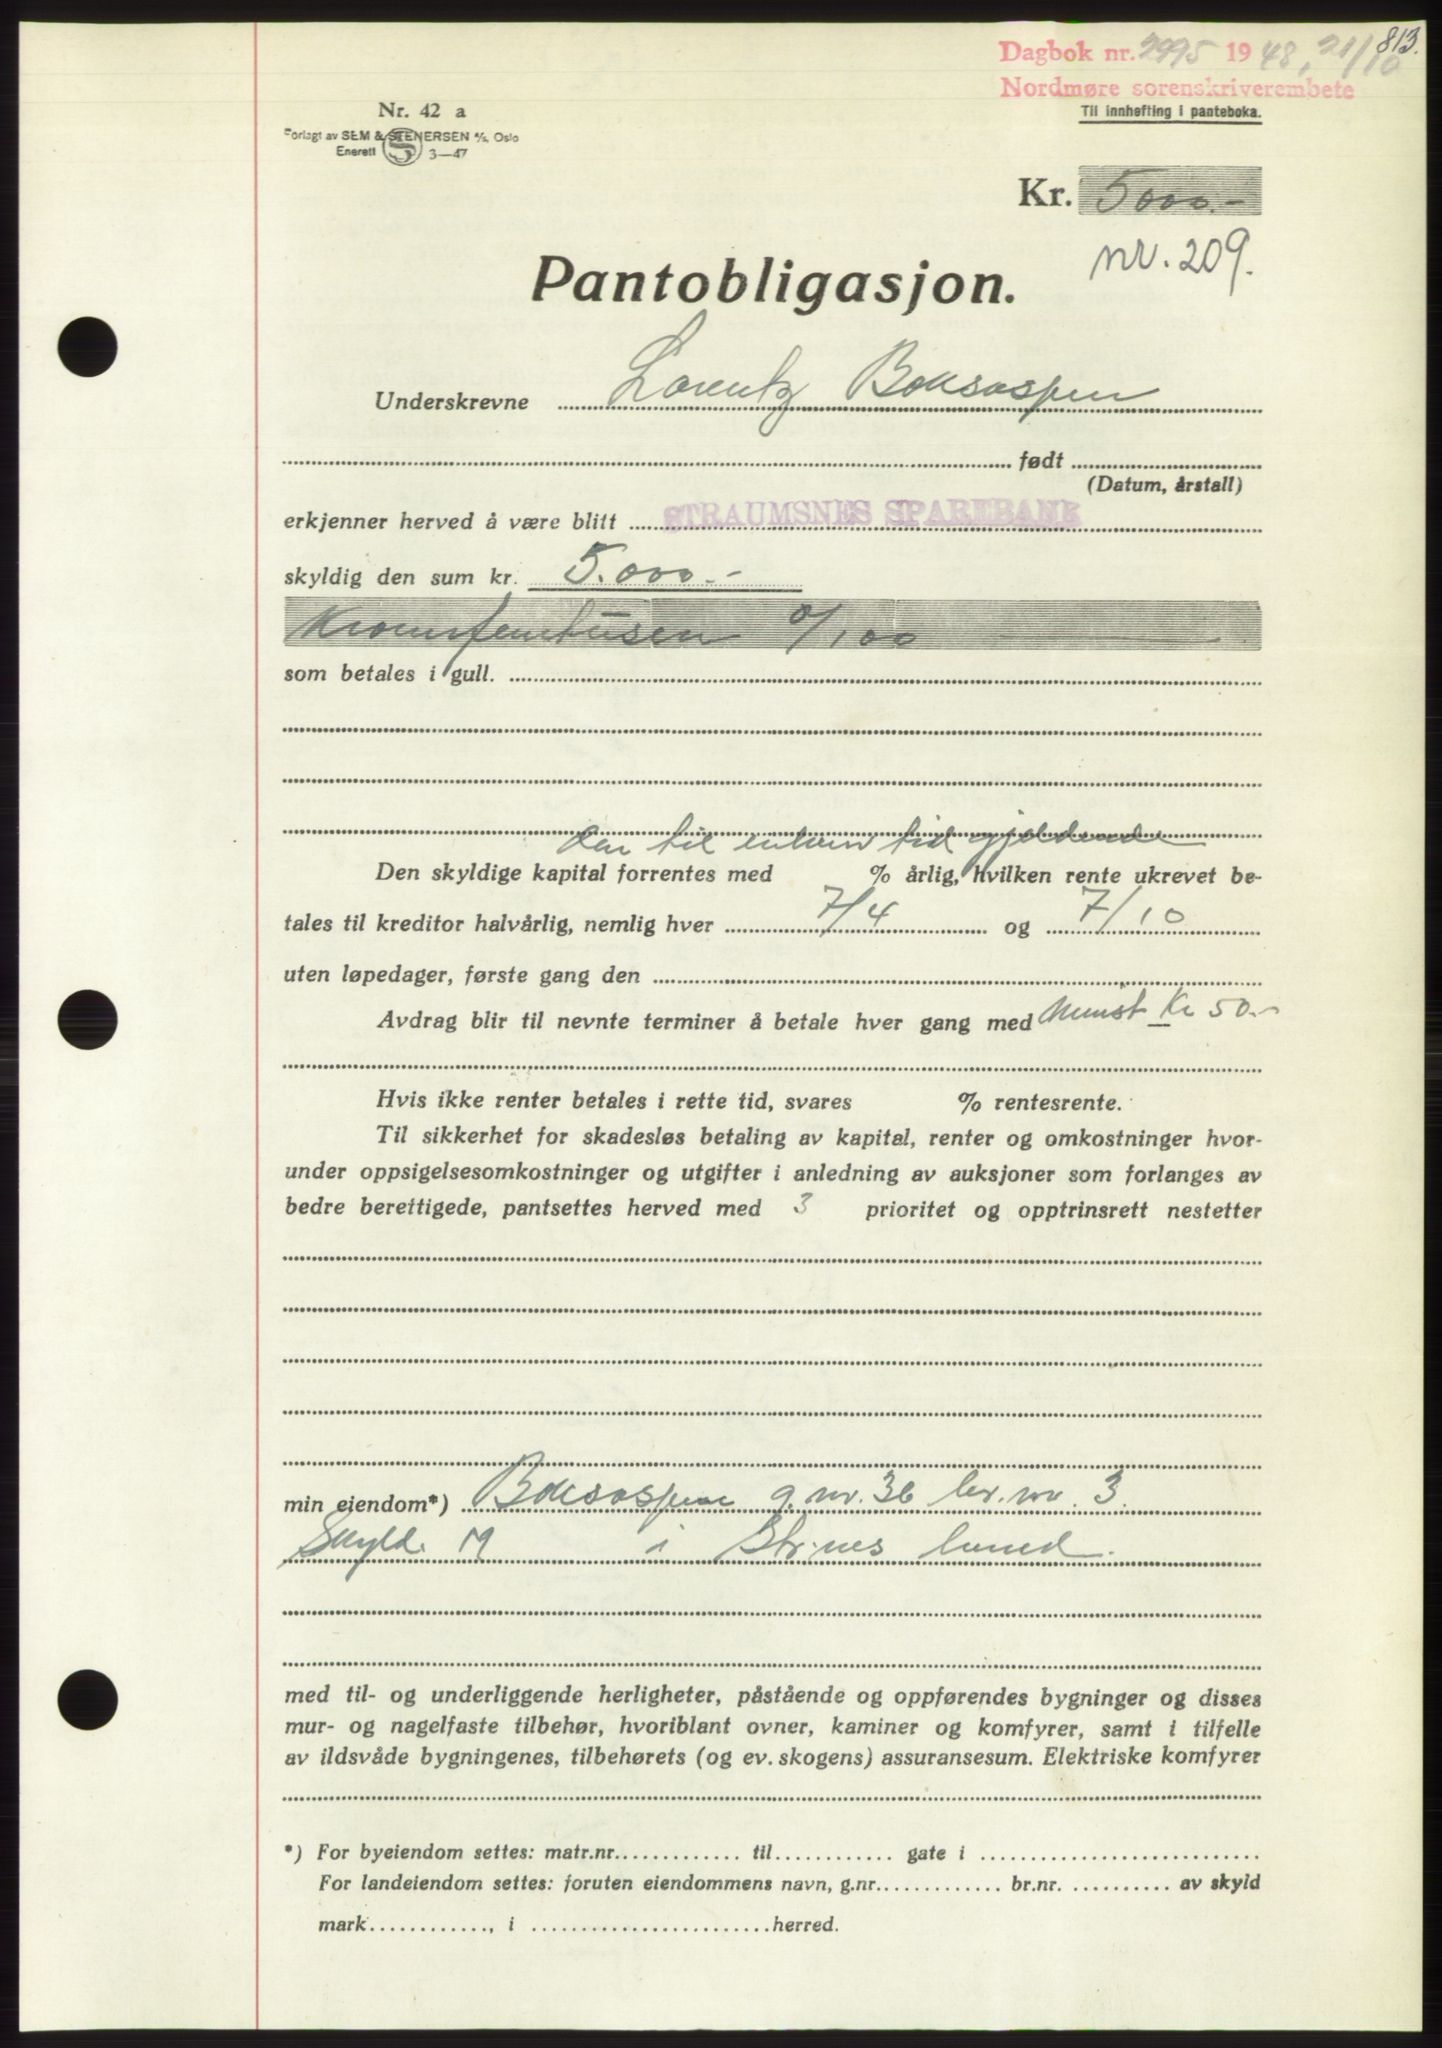 813.
Dagbok nr. 2995 1948, 21/10
Nordmøre sorenskriverembete
Til innhefting i panteboka.
Nr. 42 a
Forlagt av SEM & STENERSEN A/S, Oslo
Enerett S 3—47
Kr. 5000.-
nr. 209.
Pantobligasjon.
Underskrevne Lorentz Boksaspen
født
(Datum, årstall)
erkjenner herved å være blitt STRAUMSNES SPAREBANK
skyldig den sum kr. 5.000.-
Kronerfemtusen 0/100
som betales i gull.
den til enhver tid gjeldende
Den skyldige kapital forrentes med % årlig, hvilken rente ukrevet be-
tales til kreditor halvårlig, nemlig hver 7/4 og 7/10
uten løpedager, første gang den
Avdrag blir til nevnte terminer å betale hver gang med minst Kr 50.-
Hvis ikke renter betales i rette tid, svares % rentesrente.
Til sikkerhet for skadesløs betaling av kapital, renter og omkostninger hvor-
under oppsigelsesomkostninger og utgifter i anledning av auksjoner som forlanges av
bedre berettigede, pantsettes herved med 3 prioritet og opptrinsrett nestetter
min eiendom*) Boksaspen g.nr. 36 br.nr. 3.
Skyld. M i Str.nes herred.
med til- og underliggende herligheter, påstående og oppførendes bygninger og disses
mur- og nagelfaste tilbehør, hvoriblant ovner, kaminer og komfyrer, samt i tilfelle
av ildsvåde bygningenes, tilbehørets (og ev. skogens) assuransesum. Elektriske komfyrer
*) For byeiendom settes: matr.nr. til gate i
For landeiendom settes: foruten eiendommens navn, g.nr. br.nr. av skyld
mark, i herred.